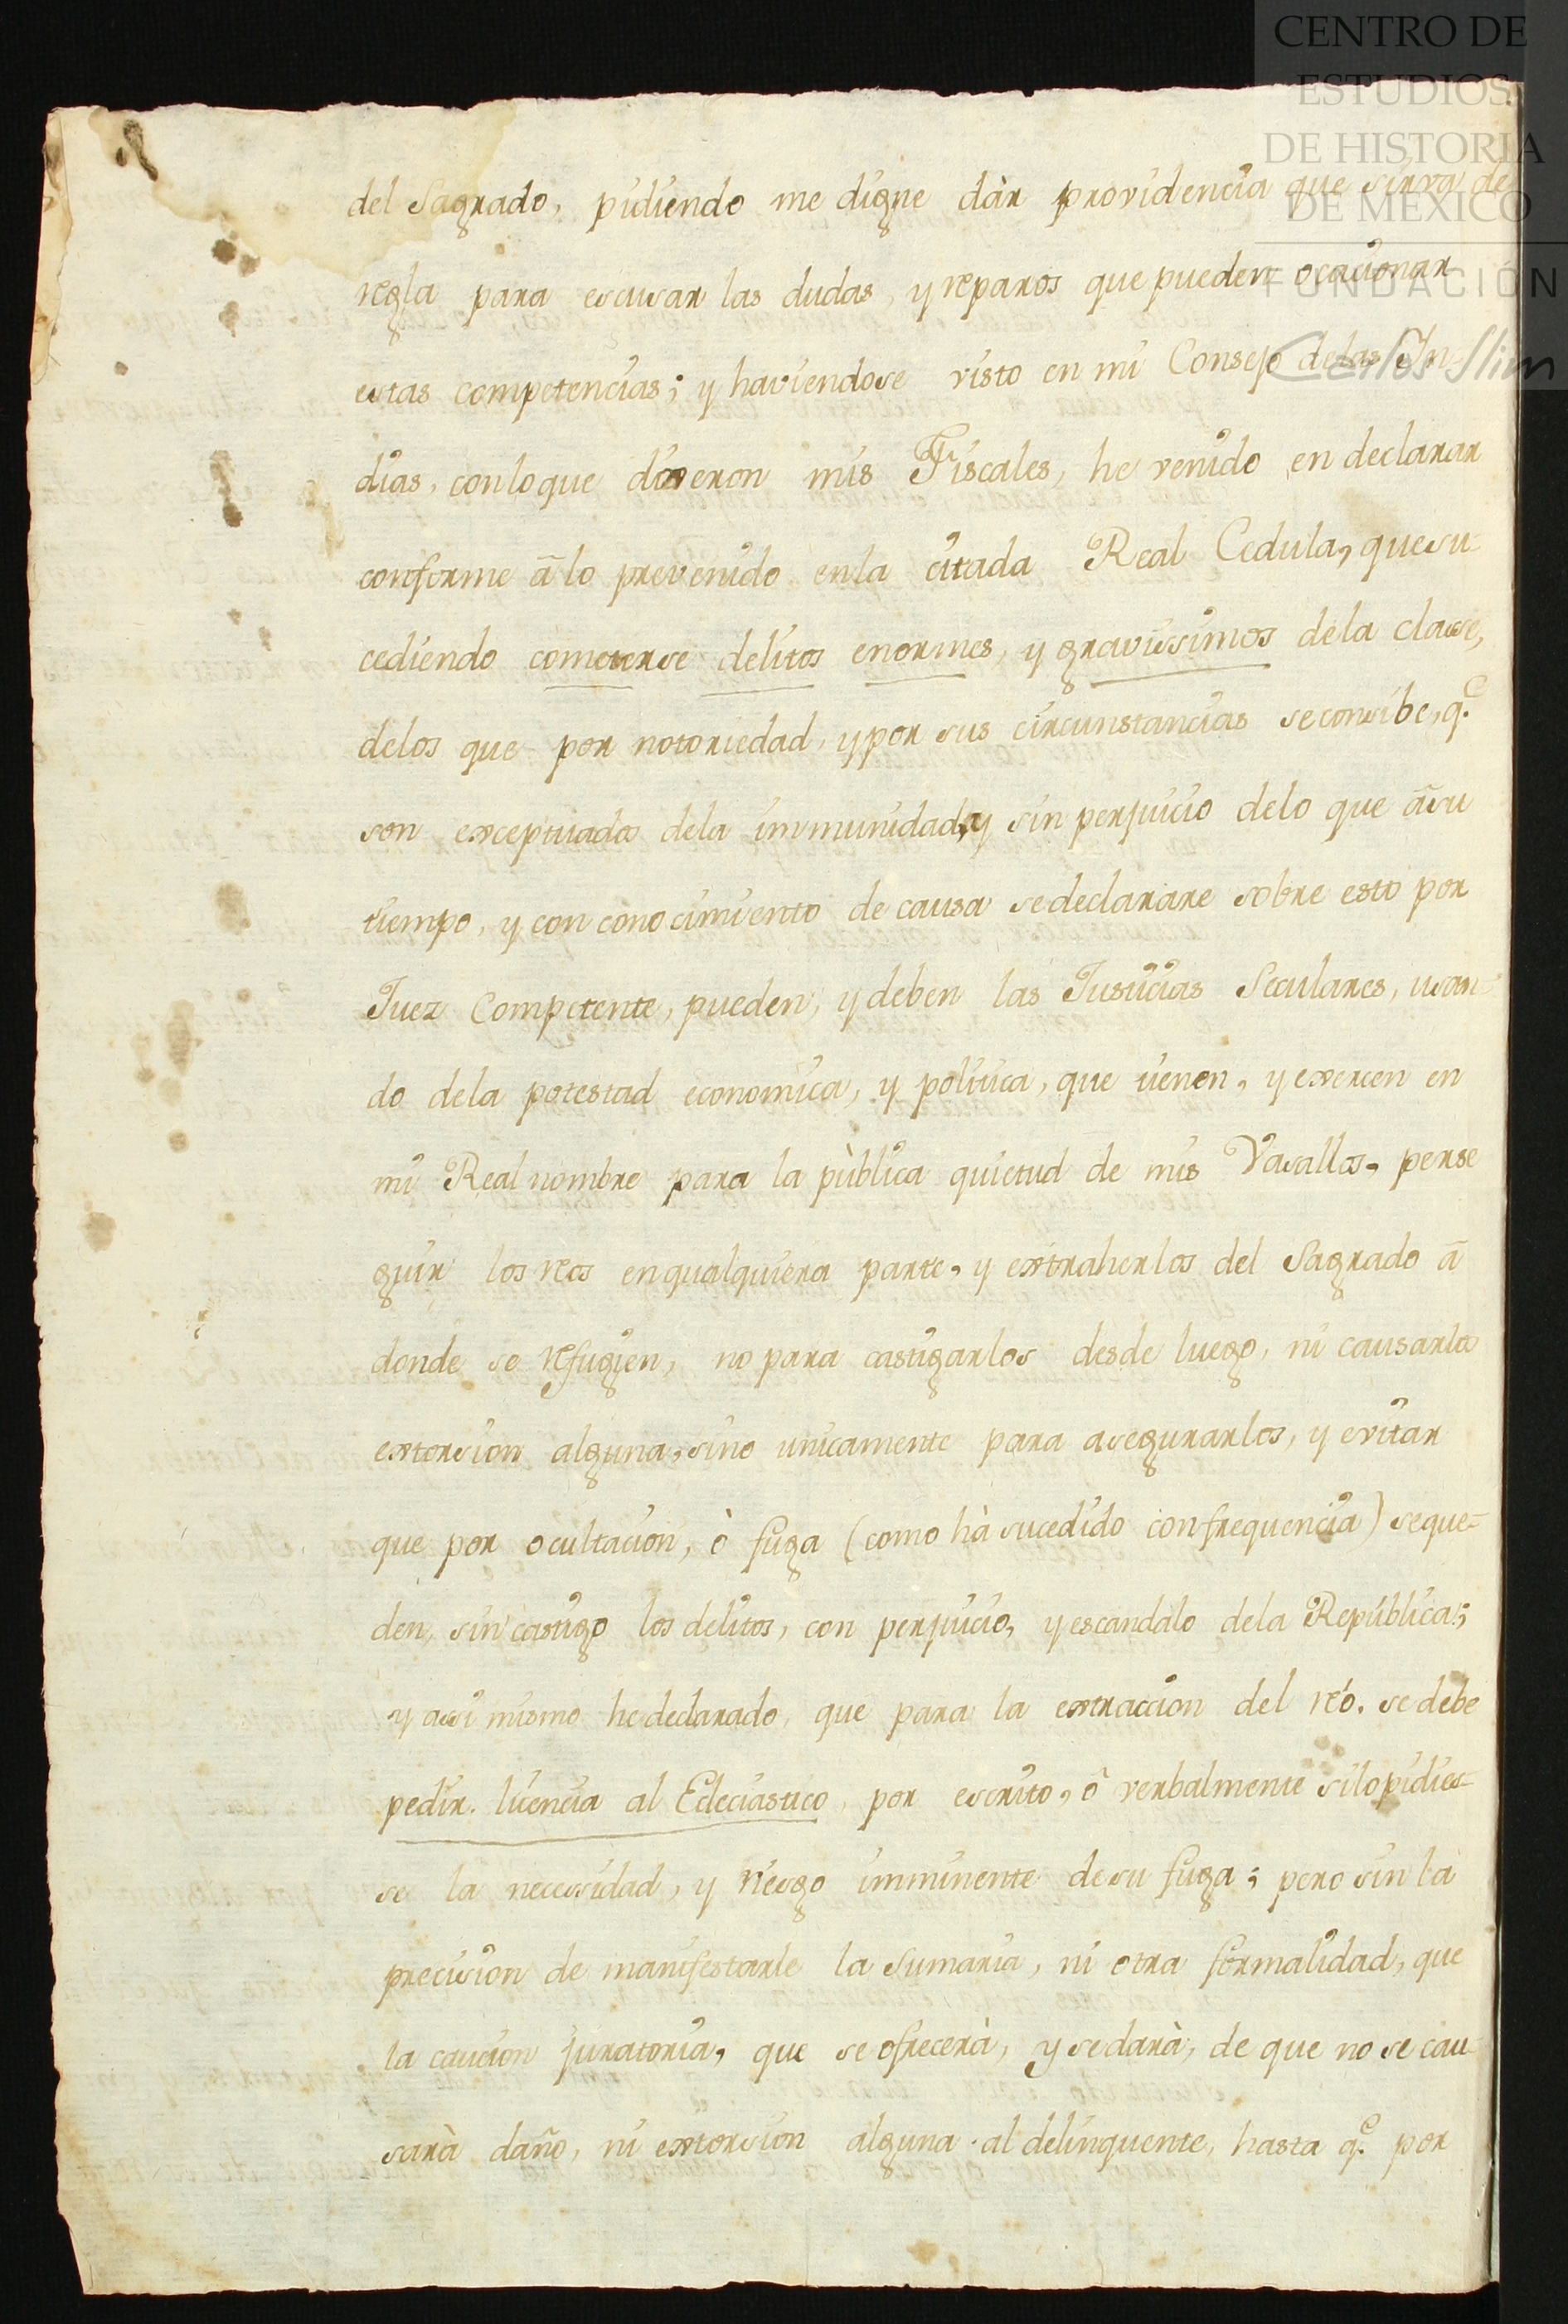 CENTRO DE
ESTUDIOS
DE HISTORIA
DE MEXICO
FUNDACIÓN
Carlos Slim
del Sagrado, pidiendo me digne dàr providencia que sirva de
regla para escusar las dudas, y reparos que pueden ocacionar
estas competencias; y haviendose visto en mi Consejo delas In-
dias, conloque dixeron mis Fiscales, he venido en declarar
conforme â lo prevenido enla citada Real Cedula, quesu-
cediendo cometerse delitos enormes, y gravissimos dela clase,
delos que por notoriedad, ypor sus circunstancias seconsibe, q.e
son exceptuados dela immunidad, y sin perjuicio delo que âsu
tiempo, y con conocimiento de causa sedeclarare sobre esto por
Juez Competente, pueden, y deben las Justicias Seculares, usan-
do dela potestad economica, y politica, que tienen, y exercen en
mi Real nombre para la pùblica quietud de mis Vasallos, perse
guir los reos enqualquiera parte, y extraherlos del Sagrado â
donde se refugien, no para castigarlos desde luego, ni causarles
extorsion alguna, sino unicamente para asegurarlos, y evitar
que por ocultacion, ò fuga (como hà sucedido confrequencia) seque-
den sin castigo los delitos, con perjuicio, y escandalo dela Repùblica;
y assi mismo hedeclarado, que para la extraccion del reo. se debe
pedir licencia al Eclesiastico, por escrito, ô verbalmente silopidies-
se la necessidad, y riesgo imminente desu fuga; pero sin la
precision de manifestarle la Sumaria, ni otra formalidad, que
la caucion juratoria, que se ofrecerà, y sedarà, de que no se cau-
sarà daño, ni extorsion alguna al delinquente, hasta q.e por